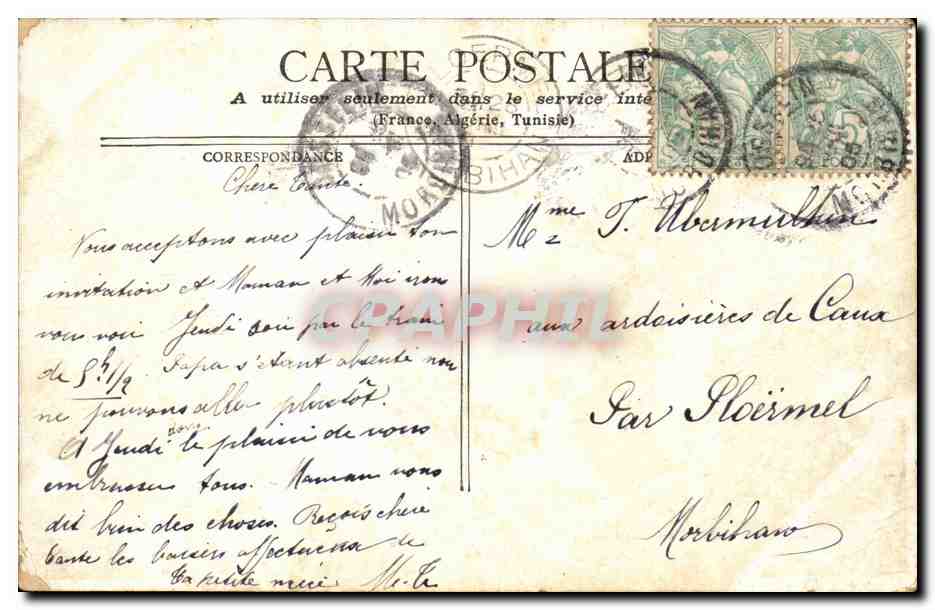 CARTE POSTALE
A utiliser seulement dans le service inté
(France, Algérie, Tunisie)
CORRESPONDANCE
AD
Chère Tante.
Nous acceptons avec plaisir ton
invitation et Maman et Moi irons
vous voir Jeudi soir par le train
de 5h 1/2. Papa s'étant absenté nous
ne pouvons aller plustôt.
A Jeudi donc le plaisir de vous
embrasser tous. Maman vous
dit bien des choses. Reçois chère
tante les baisers affectueux de
ta petite nièce M-T
Mme T. Ubermulhen
aux ardoisières de Caux
Par Ploërmel
Morbihan
CRAPHIL
MOR
BIHAN
5